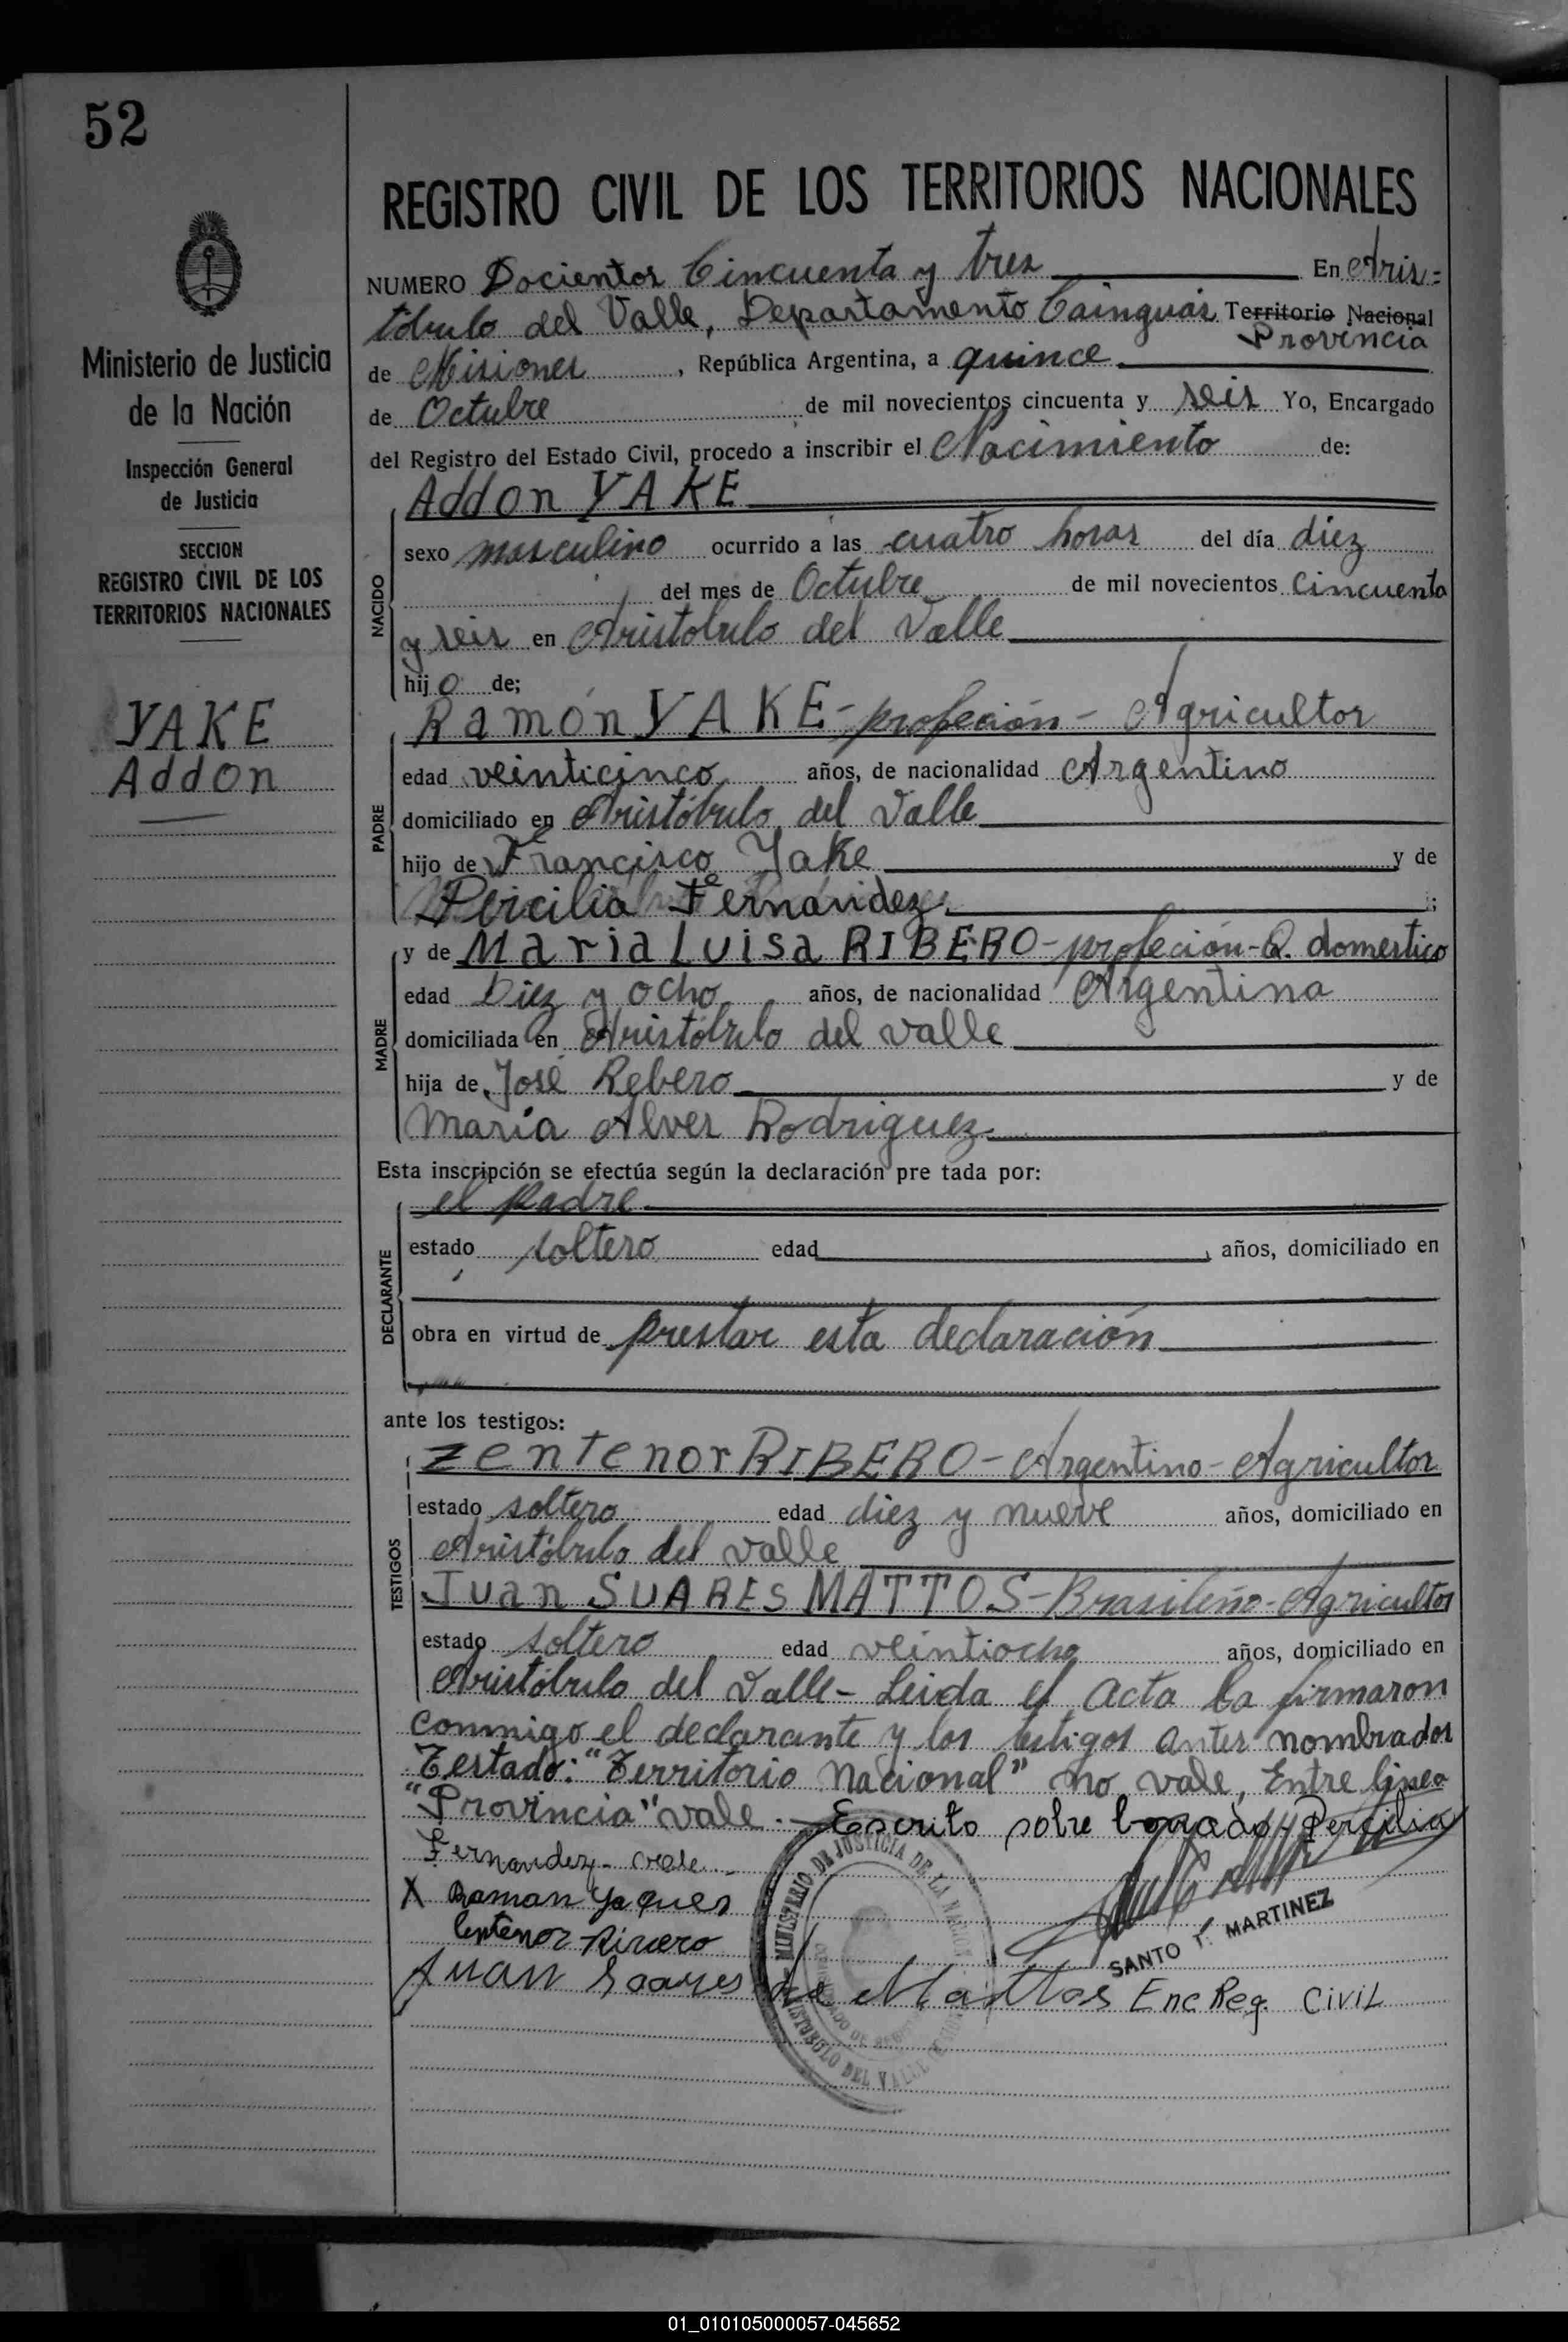 52
Ministerio de Justicia
de la Nación
Inspección General
de Justicia
SECCION
REGISTRO CIVIL DE LOS
TERRITORIOS NACIONALES
YAKE
Addon
REGISTRO CIVIL DE LOS TERRITORIOS NACIONALES
NUMERO Docientos Cincuenta y tres En Aris=
tóbulo del Valle, Departamento Cainguás Territorio Nacional
Provincia
de Misiones, República Argentina, a quince
de Octubre de mil novecientos cincuenta y seis Yo, Encargado
del Registro del Estado Civil, procedo a inscribir el Nacimiento de:
Addon YAKE
NACIDO
sexo masculino ocurrido a las cuatro horas del día diez
del mes de Octubre de mil novecientos Cincuenta
y seis en Aristobulo del Valle
hijo de;
PADRE
Ramón YAKE - profeción - Agricultor
edad veinticinco años, de nacionalidad Argentino
domiciliado en Aristóbulo del Valle
hijo de Francisco Yake y de
Percilia Fernández;
MADRE
y de Maria Luisa RIBERO - profeción - Q. domestico
edad Diez y ocho años, de nacionalidad Argentina
domiciliada en Aristóbulo del valle
hija de José Rebero y de
María Alves Rodriguez
Esta inscripción se efectúa según la declaración pre tada por:
DECLARANTE
el padre
estado soltero edad , años, domiciliado en
obra en virtud de prestar esta declaración
ante los testigos:
TESTIGOS
zentenor RIBERO - Argentino - Agricultor
estado soltero edad diez y nueve años, domiciliado en
Aristóbulo del valle
Juan SUARES MATTOS - Brasileño - Agricultor
estado soltero edad veintiocho años, domiciliado en
Aristóbulo del Valle - Leida el Acta la firmaron
conmigo el declarante y los testigos antes nombrados
Testado: "Territorio Nacional" no vale, Entre linea
"Provincia" vale. - Escrito sobre borrado, Percilia
Fernandez - vale -
X Raman Yaques
Centenor Rivero
Juan Soares de Mattos Enc Reg. CIVIL
SANTO T. MARTINEZ
MINISTERIO DE JUSTICIA DE LA NACION
ARISTOBULO DEL VALLE
01_010105000057-045652